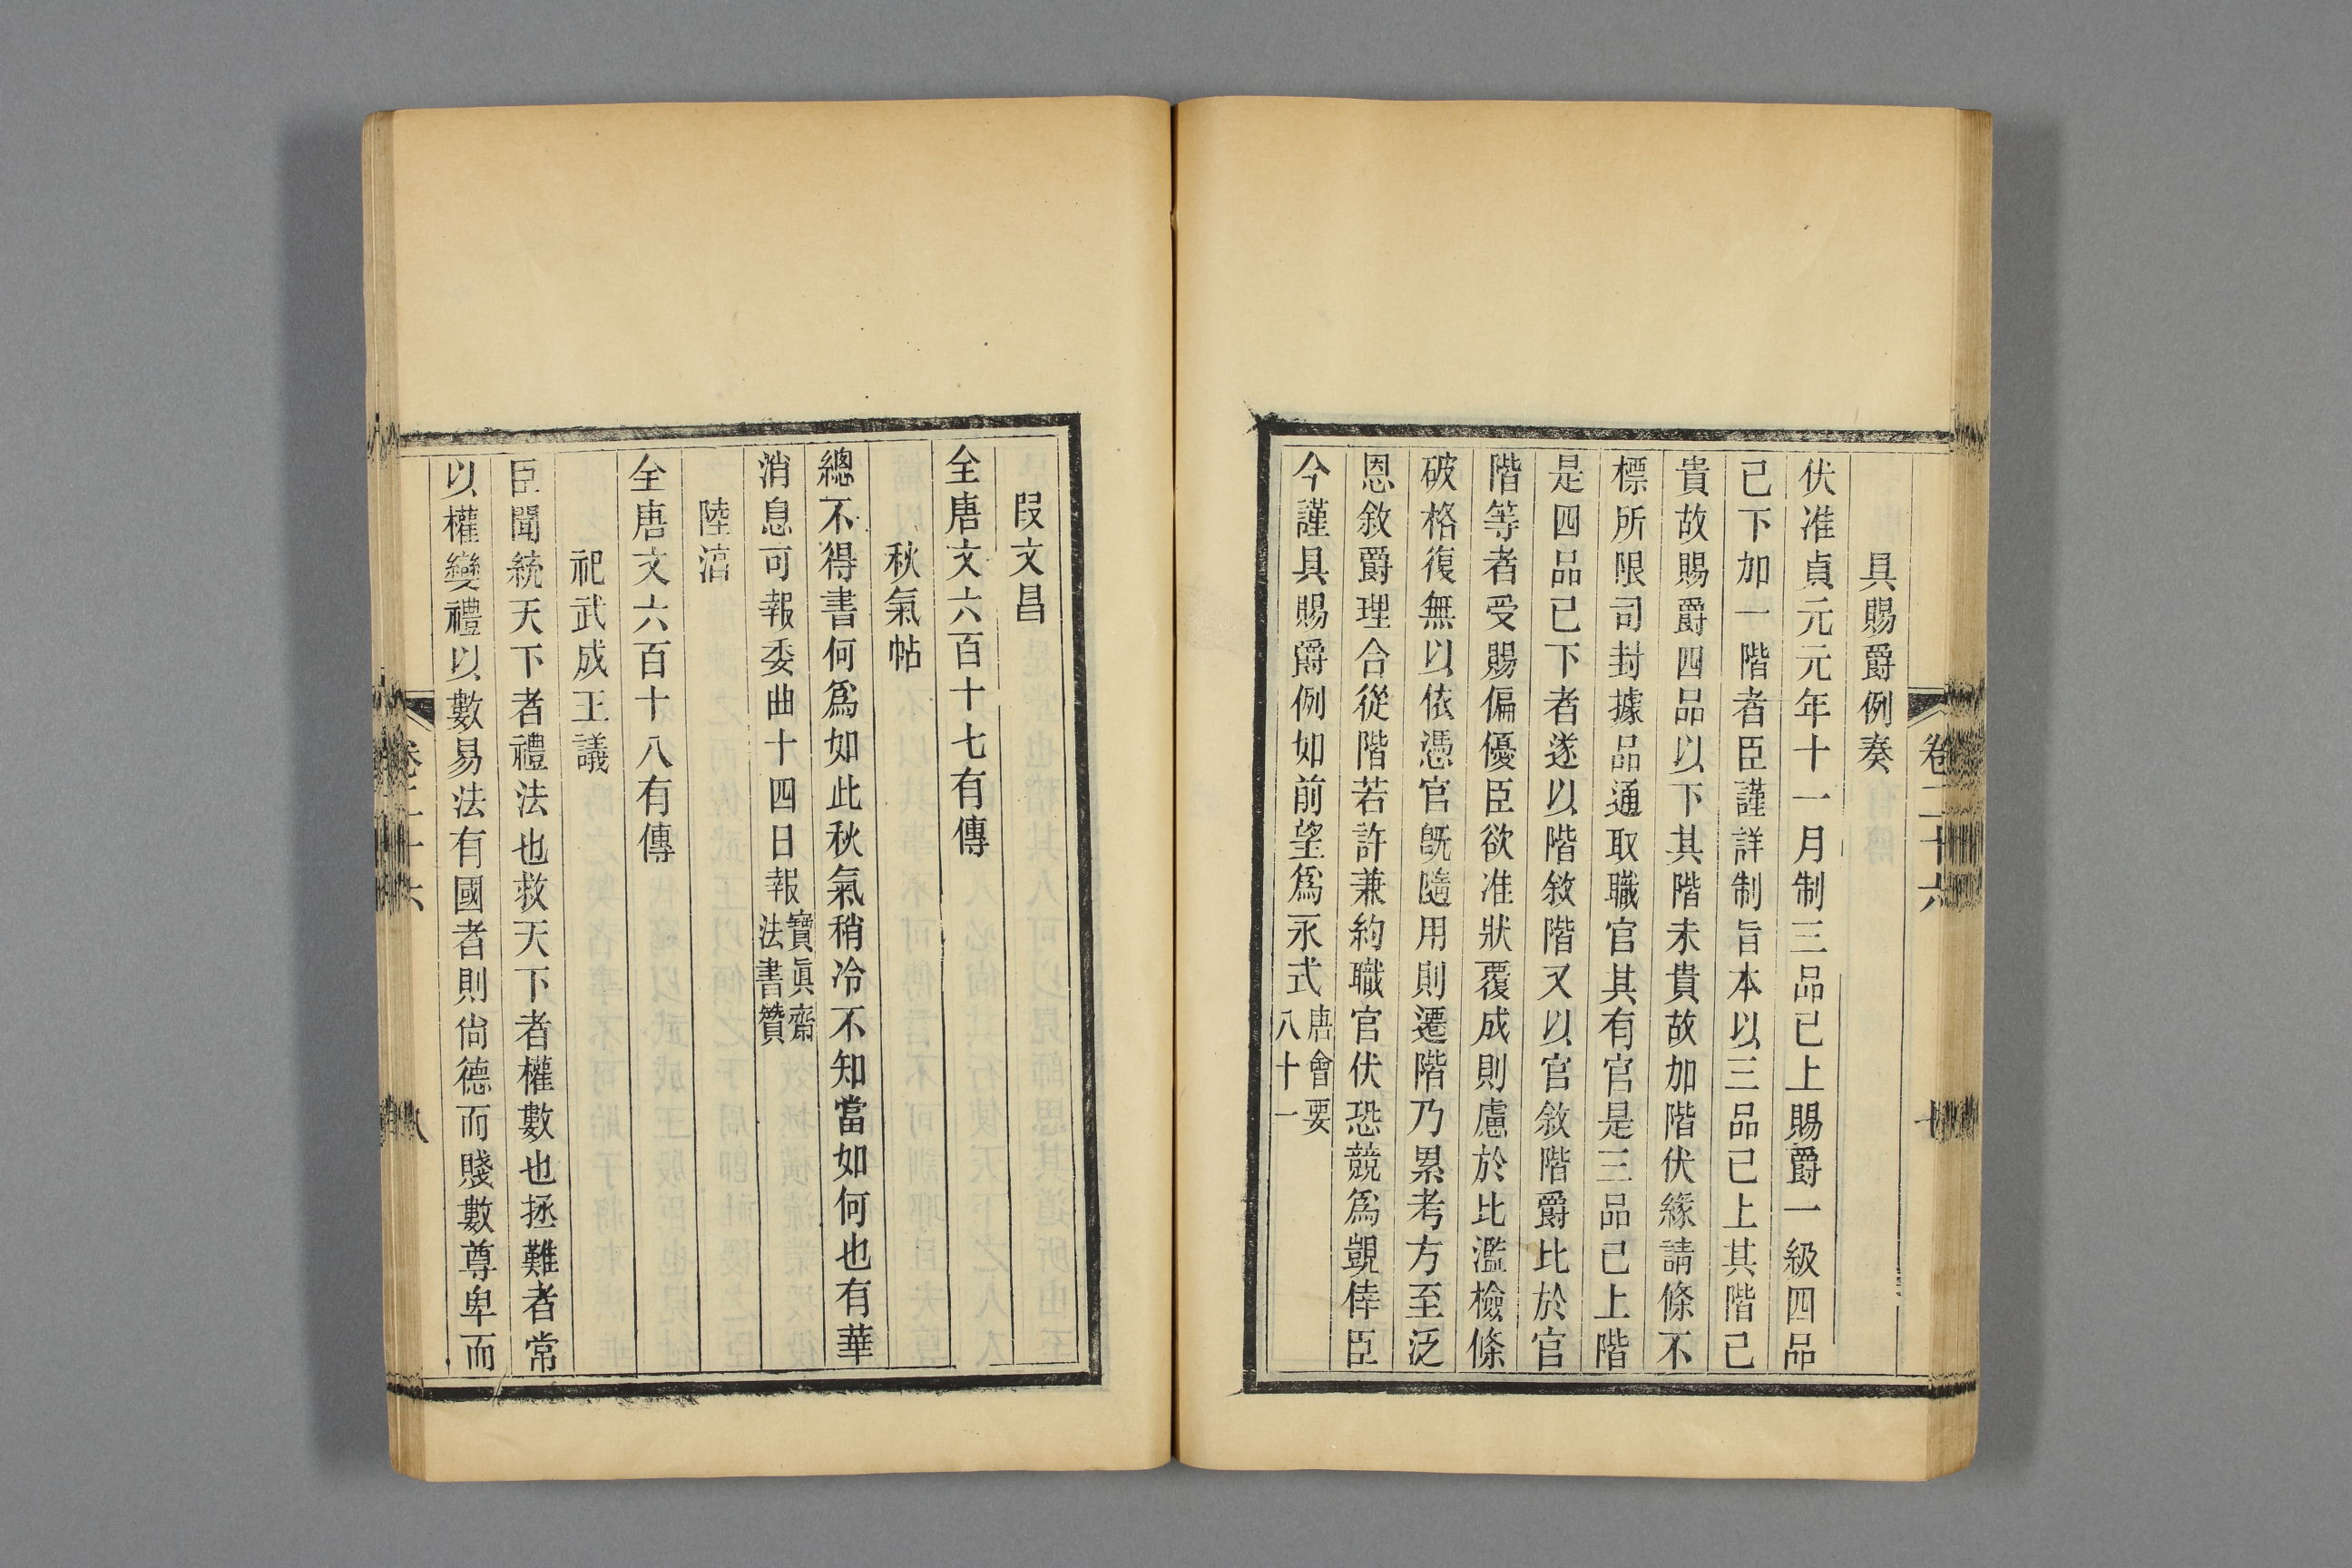 卷二十六
具賜爵例奏
伏准貞元元年十一月制三品已上賜爵一級四品
已下加一階者臣謹詳制旨本以三品已上其階已
貴故賜爵四品以下其階未貴故加階伏緣請條不
標所限司封據品通取職官其有官是三品已上階
是四品已下者遂以階敘階又以官敘階爵比於官
階等者受賜偏優臣欲准狀覆成則慮於比濫檢條
破格復無以依憑官旣隨用則遷階乃累考方至泛
恩敘爵理合從階若許兼約職官伏恐競爲覬倖臣
今謹具賜爵例如前望爲永式唐會要八十一
段文昌
全唐文六百十七有傳
秋氣帖
總不得書何爲如此秋氣稍冷不知當如何也有華
消息可報委曲十四日報寶眞齋法書贊
陸淳
全唐文六百十八有傳
祀武成王議
臣聞統天下者禮法也救天下者權數也拯難者常
以權變禮以數易法有國者則尙德而賤數尊卑而
卷二十六
八